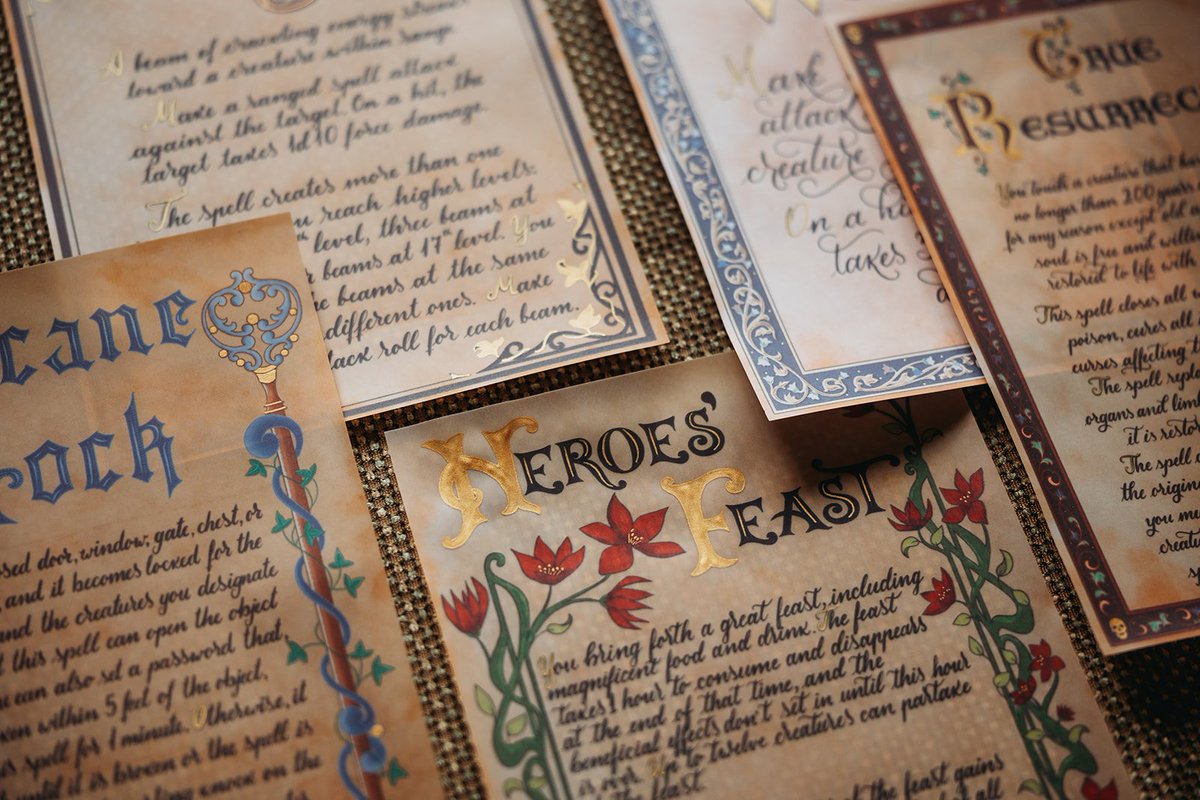 A beam of crackling energy streaks
toward a creature within range.
Make a ranged spell attack
against the target. On a hit, the
target takes 1d10 force damage.
The spell creates more than one
reach higher levels:
level, three beams at
beams at 17th level. You
beams at the same
different ones. Make
roll for each beam.
Make
attack
creature
On a
takes
True
You touch a creature that
no longer than 200 years
for any reason except old
soul is free and
restored to life with
This spell closes all
poison, cures all
curses affecting
The spell
organs and
it is
The spell
the
you
door, window, gate, chest, or
and it becomes locked for the
the creatures you designate
this spell can open the object
can also set a password that
within 5 feet of the object,
spell for 1 minute. Otherwise, it
until it is broken or the spell is
knock on the
Heroes'
Feast
You bring forth a great feast, including
magnificent food and drink. The feast
takes 1 hour to consume and disappears
at the end of that time, and the
beneficial effects don't set in until this hour
is over. Up to twelve creatures can partake
the feast.
the feast gains
all